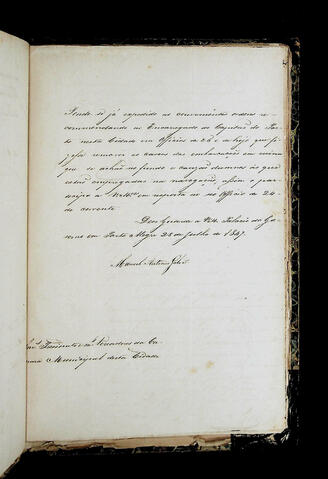 Tendo-se já expedido as convenientes ordens re-
commendando ao Encarregado da Capitania do Por-
to nesta Cidade em Officios de 26 e de hoje que fi-
zesse remover os cascos das embarcações em ruina
que se achão no fundo e damnos ás que
estão empregadas na navegação, assim o par-
ticipo a VMces em resposta ao seu Officio de 24
do corrente.
Deos Guarde a VMces Palacio do Go-
verno em Porto Alegre 28 de Julho de 1847.
Manoel Antonio Galvão
Presidente e Vereadores da Ca-
mara Municipal desta Cidade